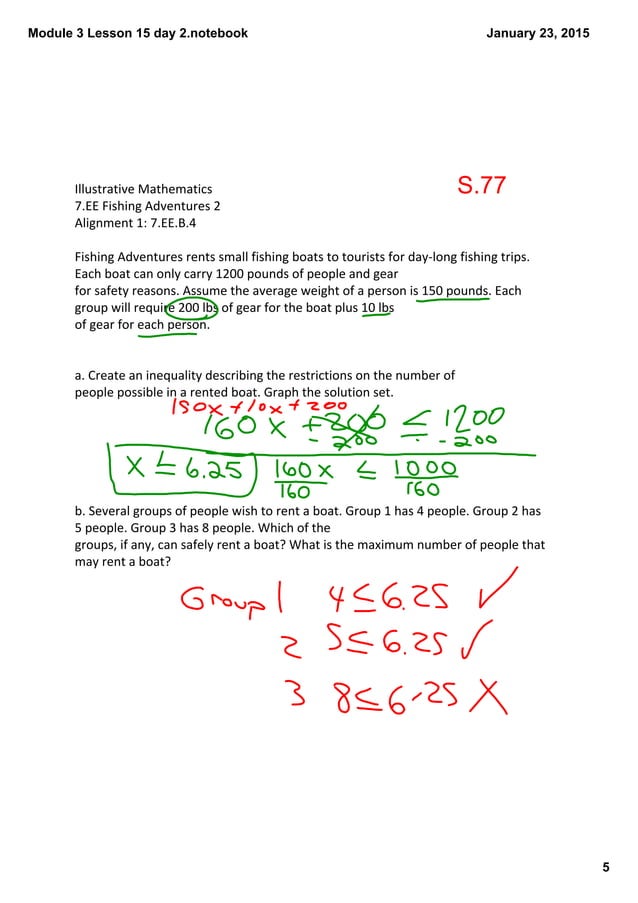 Module 3 Lesson 15 day 2.notebook
January 23, 2015
S.77
Illustrative Mathematics
7.EE Fishing Adventures 2
Alignment 1: 7.EE.B.4
Fishing Adventures rents small fishing boats to tourists for day-long fishing trips.
Each boat can only carry 1200 pounds of people and gear
for safety reasons. Assume the average weight of a person is 150 pounds. Each
group will require 200 lbs of gear for the boat plus 10 lbs
of gear for each person.
a. Create an inequality describing the restrictions on the number of
people possible in a rented boat. Graph the solution set.
150x + 10x + 200
160x + 200 ≤ 1200
- 200 - 200
x ≤ 6.25 160x ≤ 1000
160 160
b. Several groups of people wish to rent a boat. Group 1 has 4 people. Group 2 has
5 people. Group 3 has 8 people. Which of the
groups, if any, can safely rent a boat? What is the maximum number of people that
may rent a boat?
Group 1 4 ≤ 6.25 ✓
2 5 ≤ 6.25 ✓
3 8 ≤ 6.25 X
5